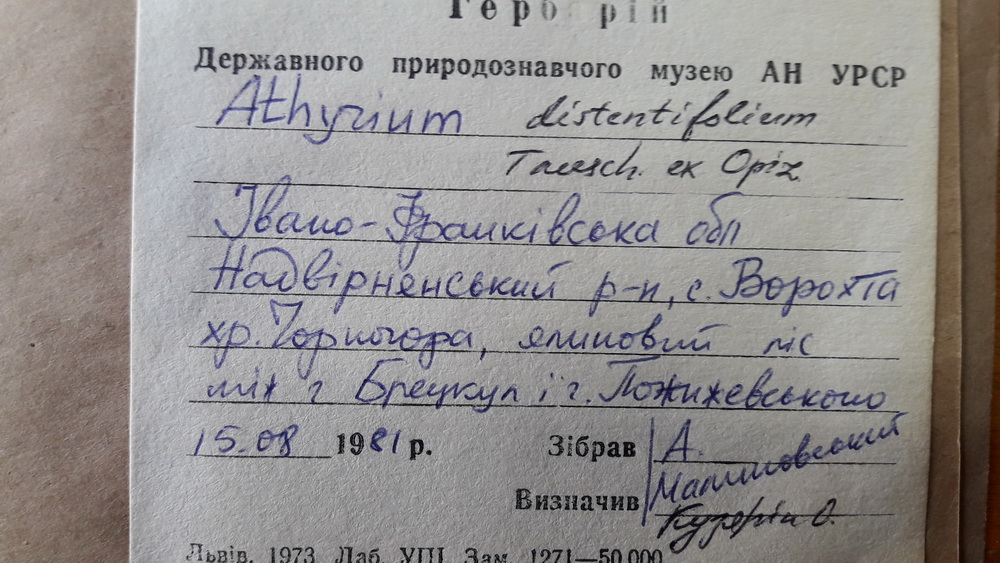 Гербарій
Державного природознавчого музею АН УРСР
Athyrium distentifolium
Tausch. ex Opiz
Івано-Франківська обл
Надвірненський р-н, с. Ворохта
хр. Чорногора, ялиновий ліс
між г Брецкул і г. Пожижевського
15.08 1981 р. Зібрав А.
Малиновський
Визначив
Львів, 1973 Лаб. УПІ Зам. 1271—50.000